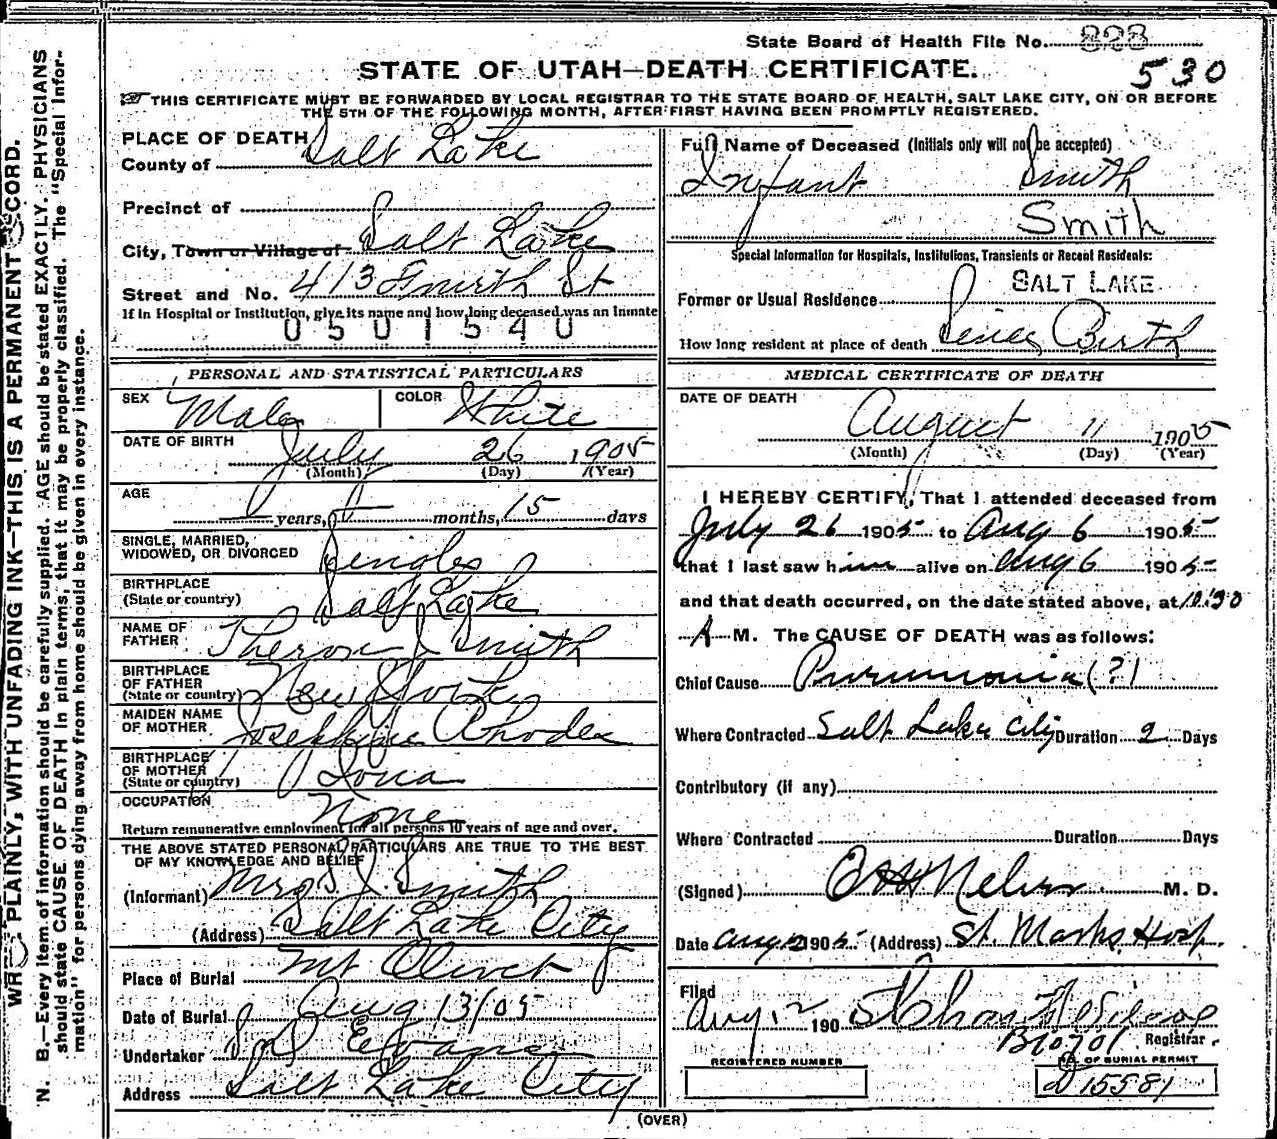 State Board of Health File No. 823
530
STATE OF UTAH—DEATH CERTIFICATE.
THIS CERTIFICATE MUST BE FORWARDED BY LOCAL REGISTRAR TO THE STATE BOARD OF HEALTH, SALT LAKE CITY, ON OR BEFORE
THE 5TH OF THE FOLLOWING MONTH, AFTER FIRST HAVING BEEN PROMPTLY REGISTERED.
PLACE OF DEATH
County of Salt Lake
Precinct of
City, Town or Village of Salt Lake
Street and No. 413 Fourth St
If in Hospital or Institution, give its name and how long deceased was an inmate
0501540
PERSONAL AND STATISTICAL PARTICULARS
SEX Male COLOR White
DATE OF BIRTH July 26 1905
(Month) (Day) (Year)
AGE
years, months, 15 days
SINGLE, MARRIED,
WIDOWED, OR DIVORCED Single
BIRTHPLACE
(State or country) Salt Lake
NAME OF
FATHER Theron J Smith
BIRTHPLACE
OF FATHER
(State or country) New York
MAIDEN NAME
OF MOTHER Josephine Rhodes
BIRTHPLACE
OF MOTHER
(State or country) Iowa
OCCUPATION None
Return remunerative employment for all persons 10 years of age and over.
THE ABOVE STATED PERSONAL PARTICULARS ARE TRUE TO THE BEST
OF MY KNOWLEDGE AND BELIEF
(Informant) Mrs J. Smith
(Address) Salt Lake City
Place of Burial Mt Olivet
Date of Burial Aug 13/05
Undertaker Evans
Address Salt Lake City
Full Name of Deceased (Initials only will not be accepted)
Infant Smith
Smith
Special Information for Hospitals, Institutions, Transients or Recent Residents:
SALT LAKE
Former or Usual Residence
How long resident at place of death Since Birth
MEDICAL CERTIFICATE OF DEATH
DATE OF DEATH
August 11 1905
(Month) (Day) (Year)
I HEREBY CERTIFY, That I attended deceased from
July 26 1905 to Aug 6 1905
that I last saw him alive on Aug 6 1905
and that death occurred, on the date stated above, at 10:30
A M. The CAUSE OF DEATH was as follows:
Chief Cause Pneumonia (?)
Where Contracted Salt Lake City Duration 2 Days
Contributory (if any)
Where Contracted Duration Days
(Signed) M. D.
Date Aug 12 1905 (Address) St. Marks Hosp.
Filed
Aug 12 1905
Registrar
REGISTERED NUMBER
NO. OF BURIAL PERMIT
15581
(OVER)
WRITE PLAINLY, WITH UNFADING INK—THIS IS A PERMANENT RECORD.
N. B.—Every item of information should be carefully supplied. AGE should be stated EXACTLY. PHYSICIANS
should state CAUSE OF DEATH in plain terms, that it may be properly classified. The "Special Infor-
mation" for persons dying away from home should be given in every instance.